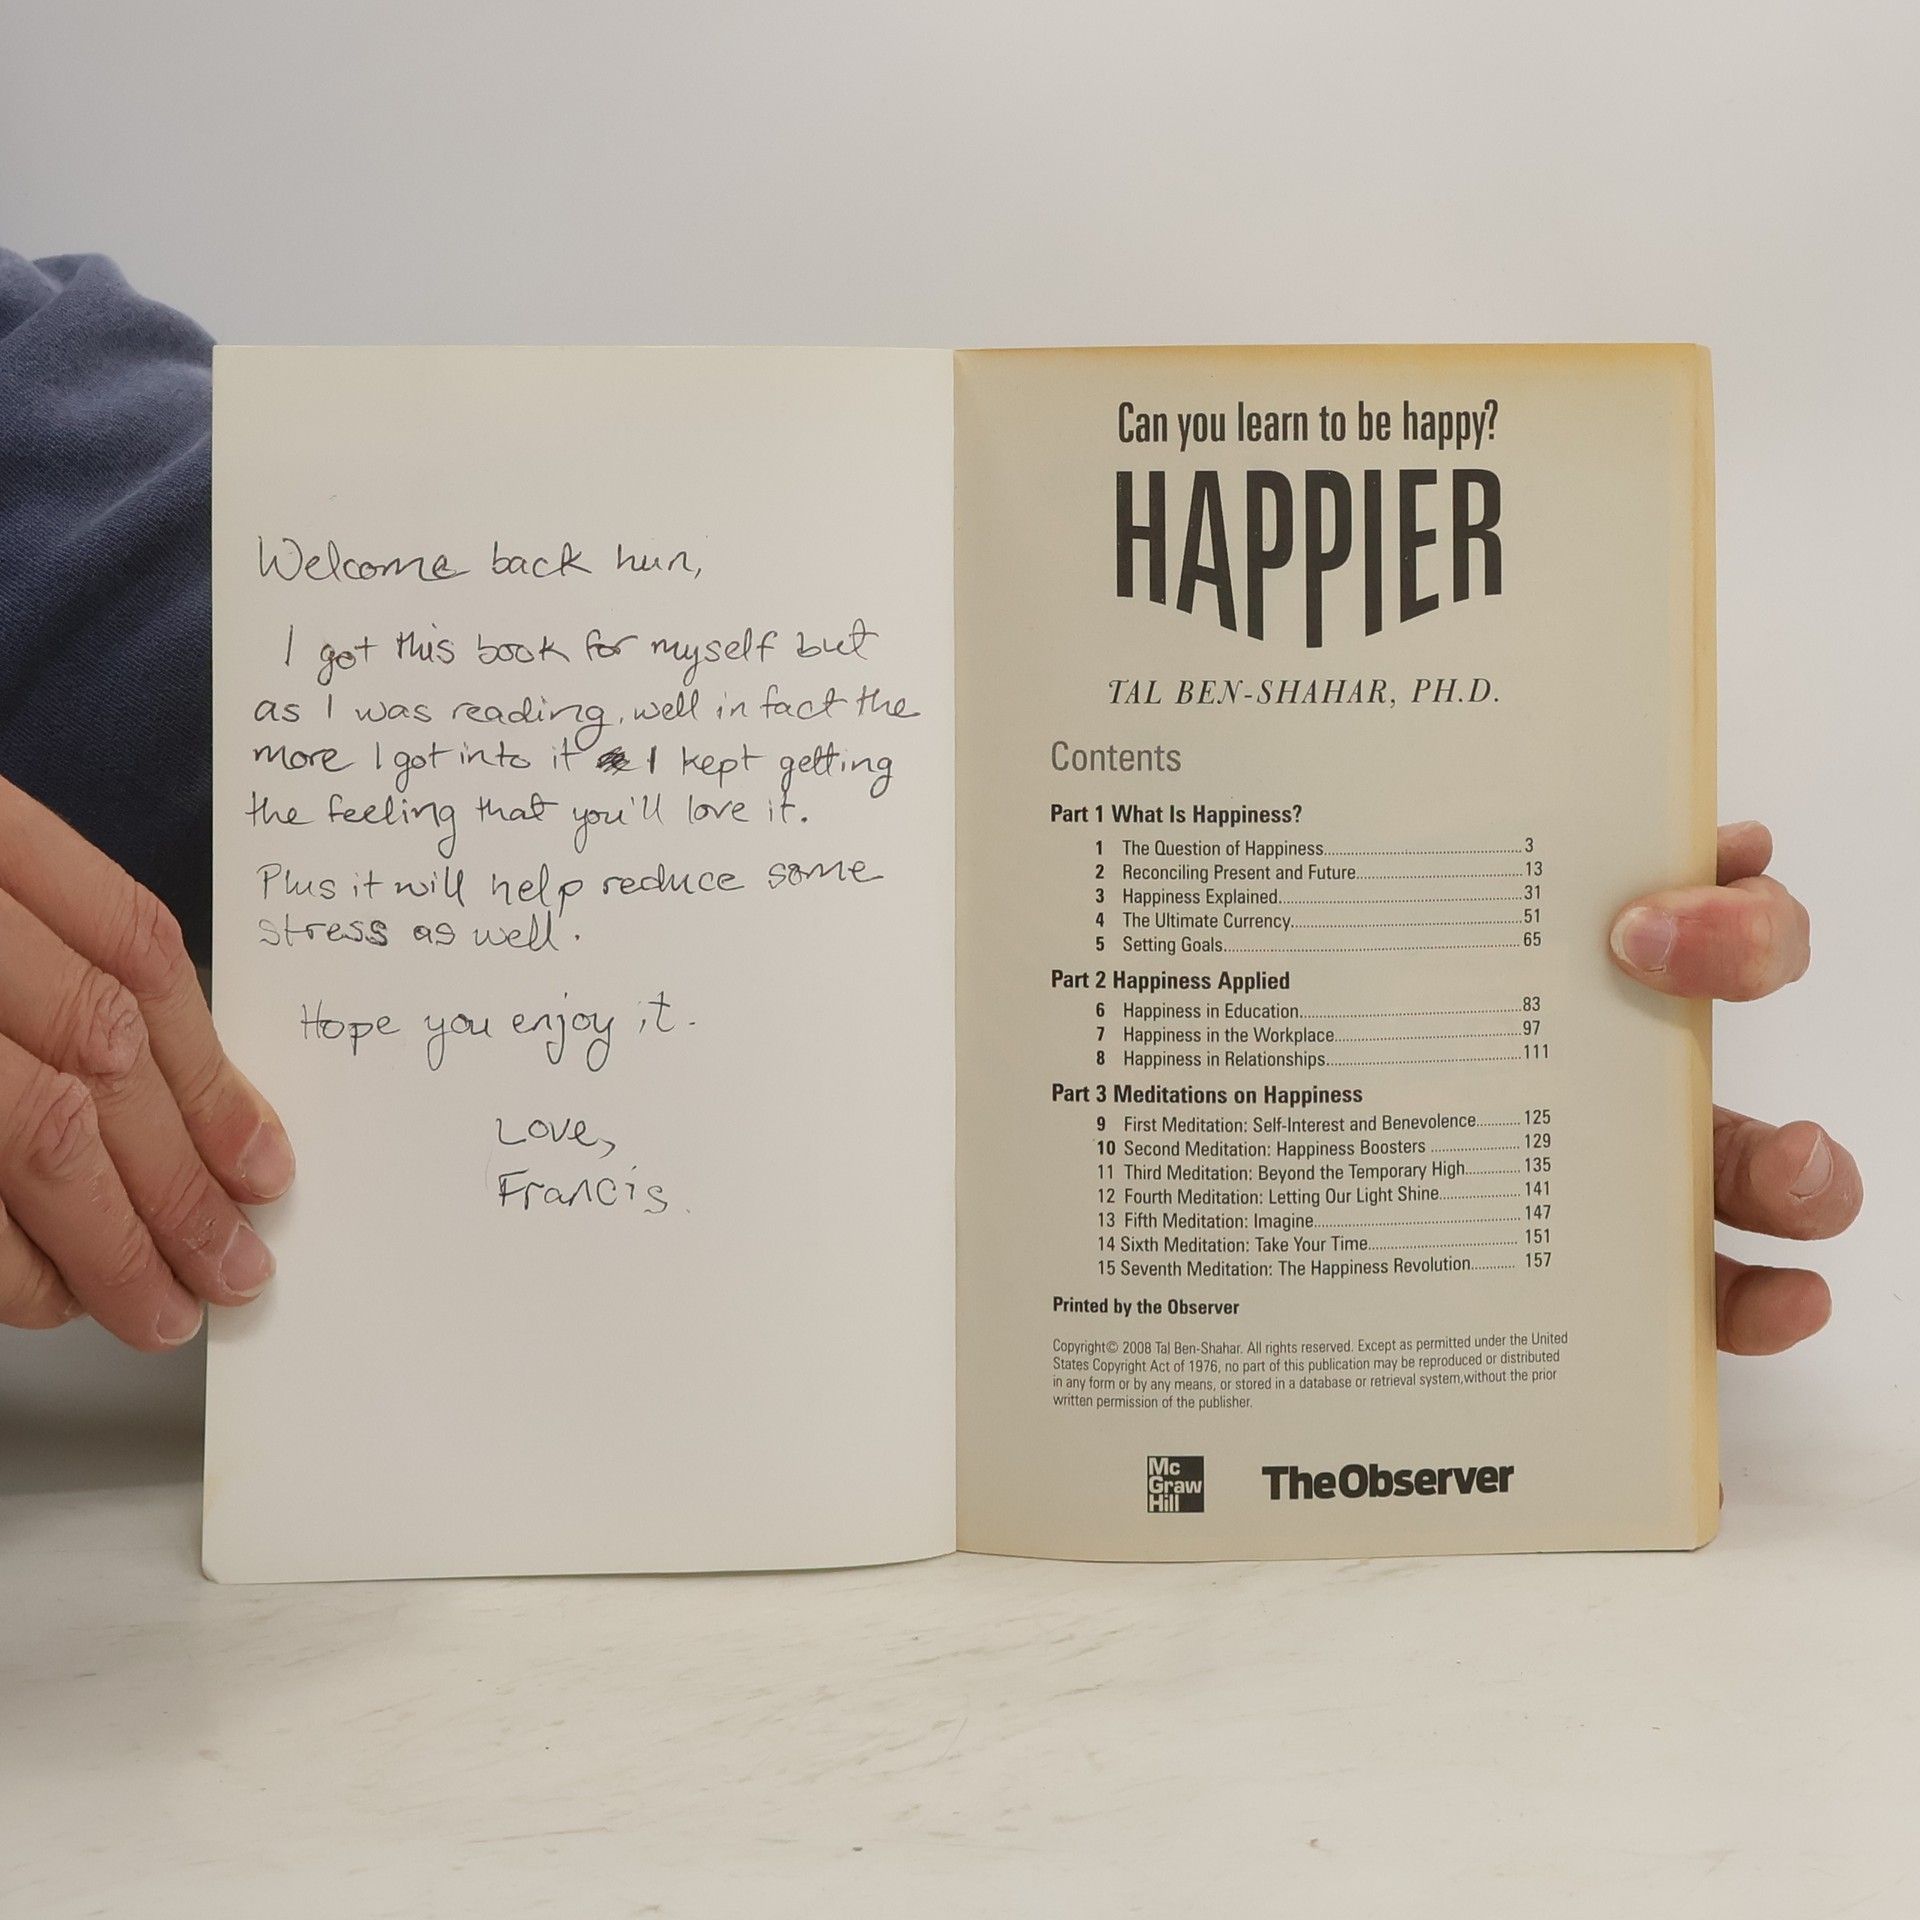 Welcome back hun,
I got this book for myself but
as I was reading, well in fact the
more I got into it I kept getting
the feeling that you'll love it.
Plus it will help reduce some
stress as well.
Hope you enjoy it.
Love,
Francis.
Can you learn to be happy?
HAPPIER
TAL BEN-SHAHAR, PH.D.
Contents
Part 1 What Is Happiness?
1 The Question of Happiness 3
2 Reconciling Present and Future 13
3 Happiness Explained 31
4 The Ultimate Currency 51
5 Setting Goals 65
Part 2 Happiness Applied
6 Happiness in Education 83
7 Happiness in the Workplace 97
8 Happiness in Relationships 111
Part 3 Meditations on Happiness
9 First Meditation: Self-Interest and Benevolence 125
10 Second Meditation: Happiness Boosters 129
11 Third Meditation: Beyond the Temporary High 135
12 Fourth Meditation: Letting Our Light Shine 141
13 Fifth Meditation: Imagine 147
14 Sixth Meditation: Take Your Time 151
15 Seventh Meditation: The Happiness Revolution 157
Printed by the Observer
Copyright© 2008 Tal Ben-Shahar. All rights reserved. Except as permitted under the United
States Copyright Act of 1976, no part of this publication may be reproduced or distributed
in any form or by any means, or stored in a database or retrieval system,without the prior
written permission of the publisher.
Mc
Graw
Hill
TheObserver